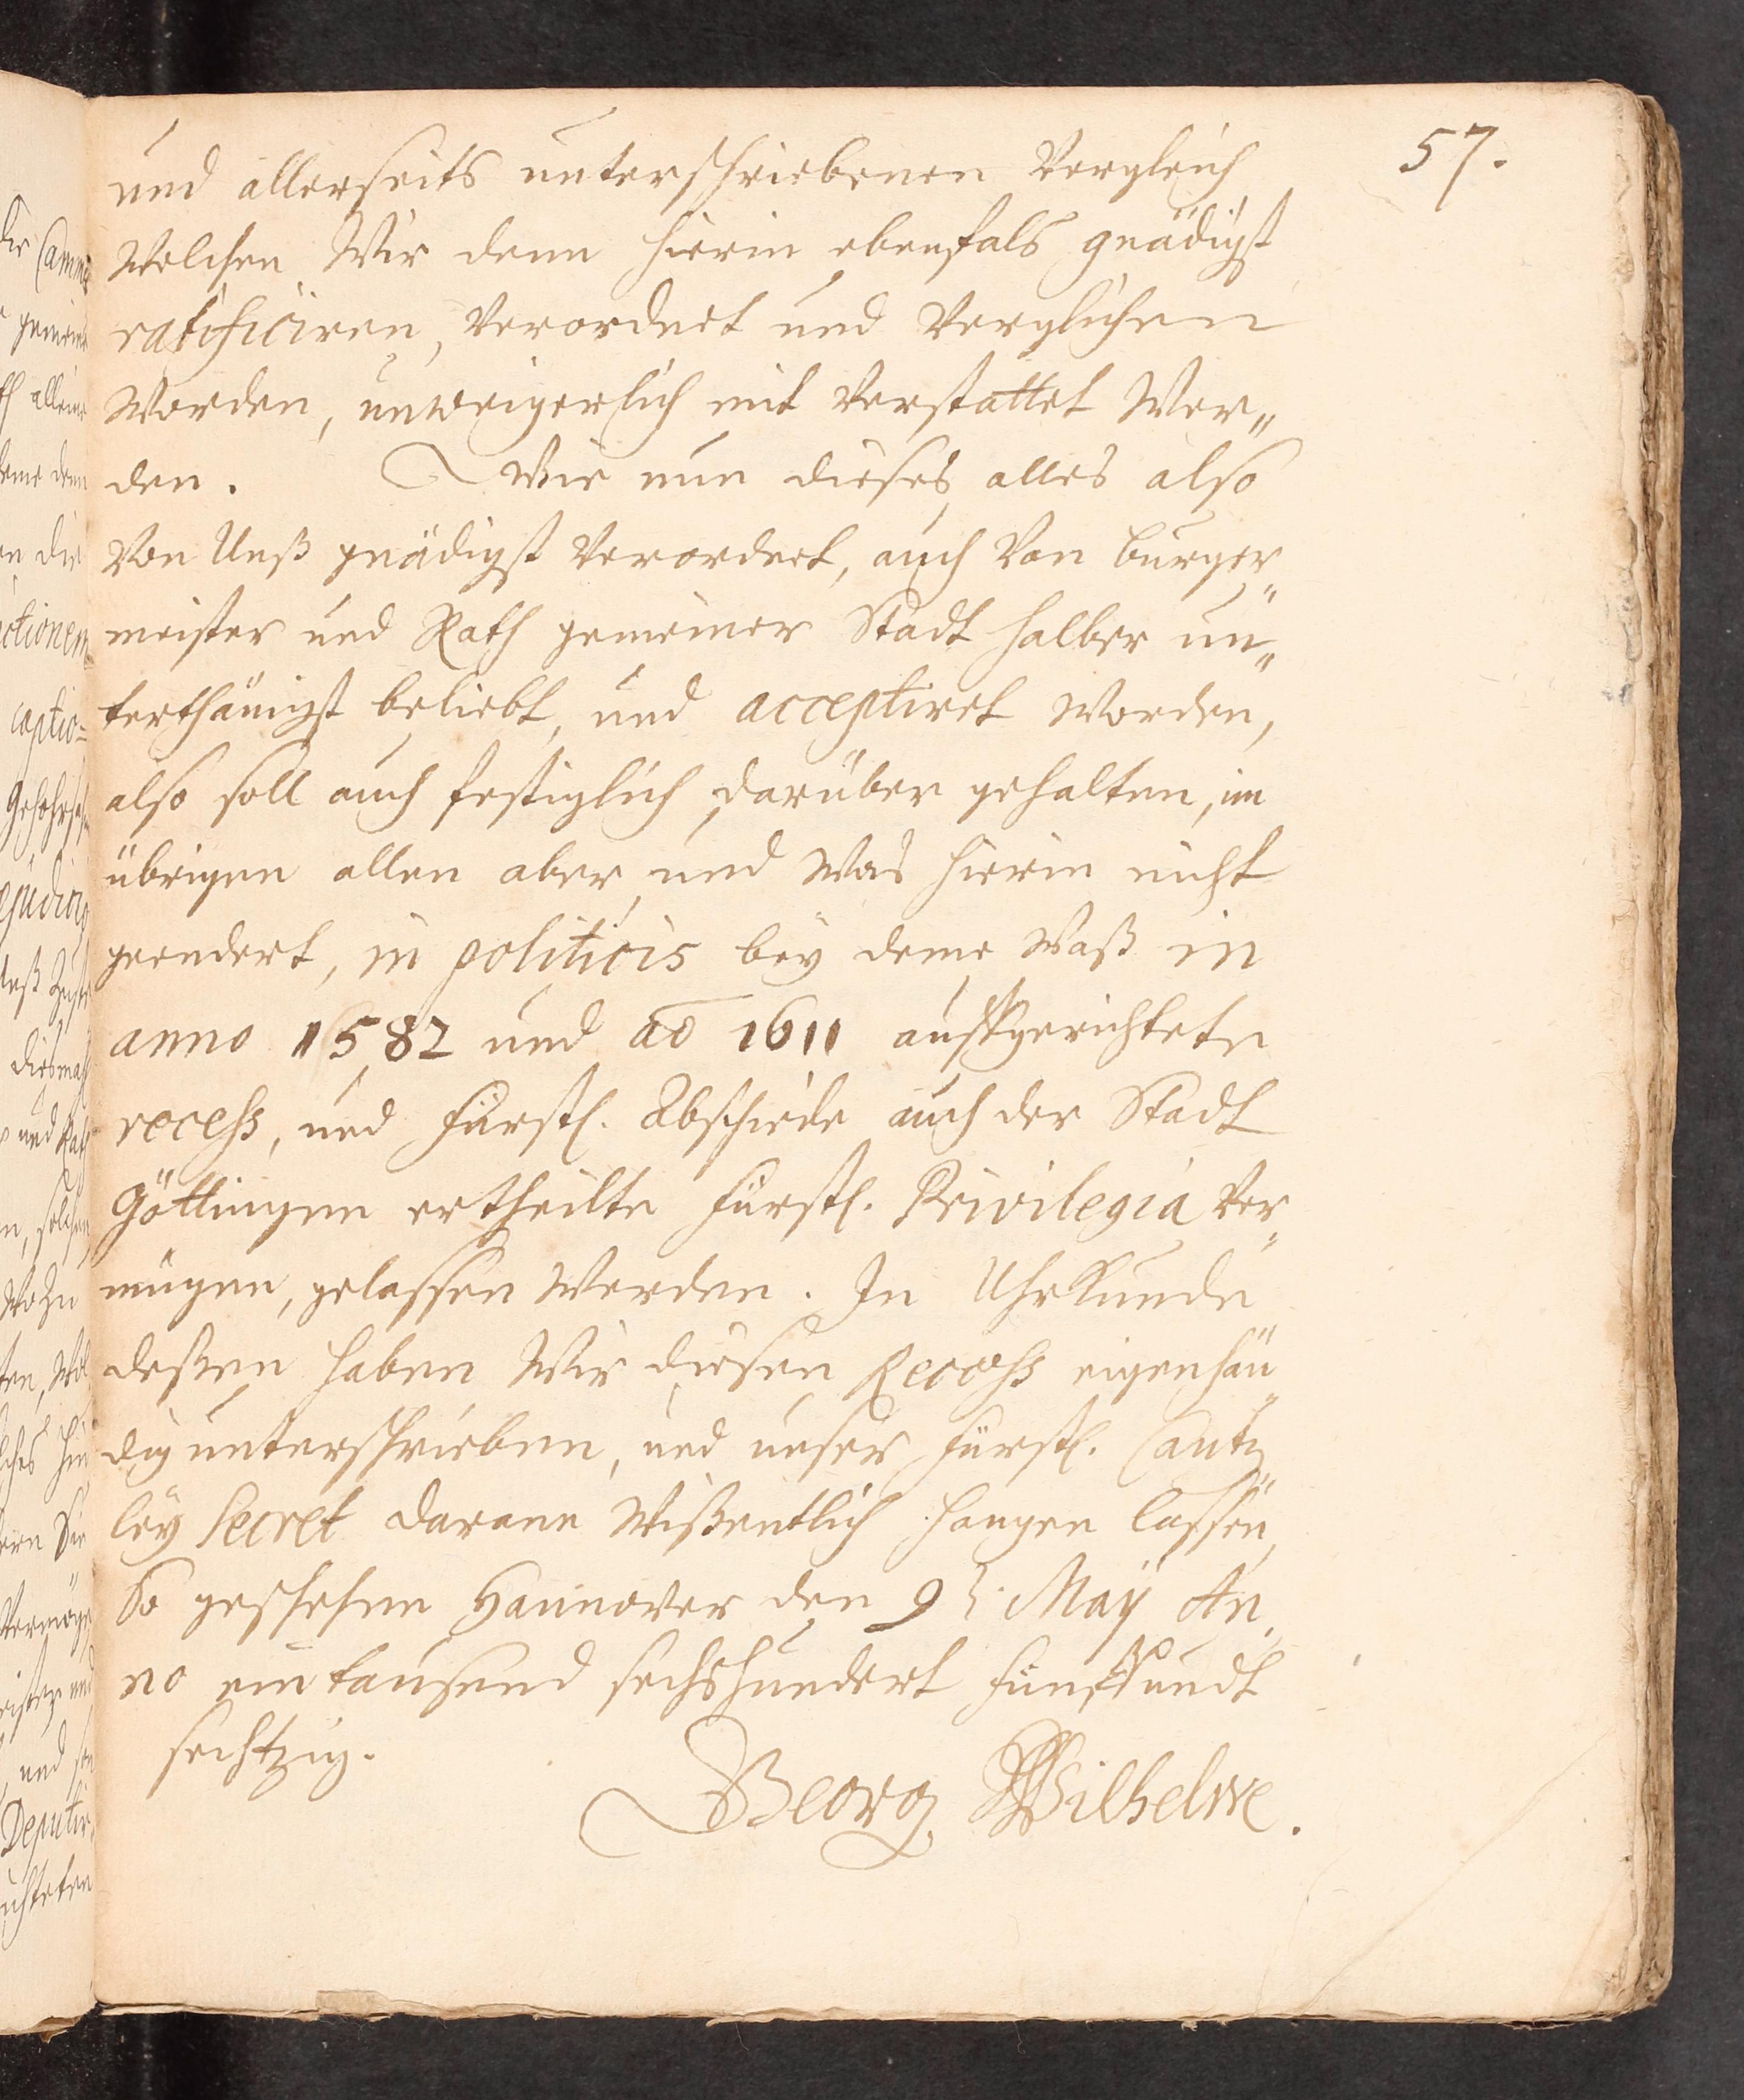 57.
und allerseits unterschriebenen Vergleich
Welchen Wir denn hierin ebenfals gnädigst
ratificiren, Verordnet und Verglichen
Worden, unweigerlich mit Verstattet Wer„
den. Wie nun dieses alles also
Von Unß gnädigst Verordnet, auch Von burger„
meister und Rath gemeiner Stadt halber un„
terthänigst beliebt, und acceptiret Worden,
also soll auch festiglich darüber gehalten, im
übrigen allen aber und Was hierin nicht
geendert, in politicis bey deme Waß in
anno 1582 und ao 1611 auffgerichtete
recess, und Fürstl. Abschiede auch der Stadt
Göttingen ertheilte Fürstl. Privilegia Ver„
mügen, gelassen Werden. In Uhrkunde
deßen haben Wir diesen Recess eigenhän„
dig unterschrieben, und unser Fürstl. Cantz„
ley Secret daran Wißentlich hangen lassen,
So geschehen Hannover den 9t. May An„
no ein tausend sechshundert fünffundt
sechtzig.
Georg Wilhelm.